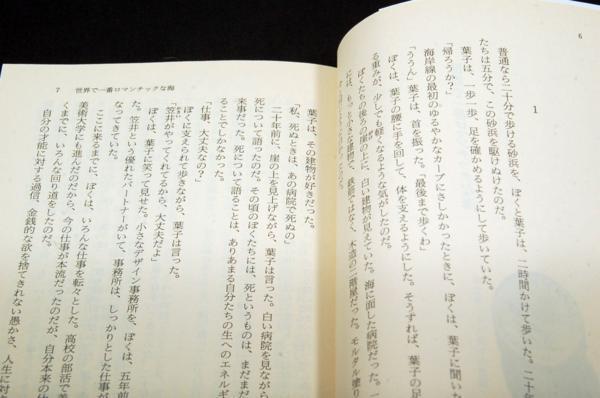 6
1
普通なら二十分で歩ける砂浜を、ぼくと葉子は、二時間かけて歩いた。二十年
たちは五分で、この砂浜を駆けぬけたのだ。
葉子は、一歩一歩、足を確かめるようにして歩いていた。
「帰ろうか?」
海岸線の最初のゆるやかなカーブにさしかかったときに、ぼくは、葉子に聞いた
「ううん」葉子は、首を振った。「最後まで歩くわ」
ぼくは、葉子の腰に手を回して、体を支えるようにした。そうすれば、葉子の足
る重みが、少しでも軽くなるような気がしたのだ。
ぼくたちの後の崖の上に、白い建物が見えていた。海に面した病院だった。
には、もっと小さな建物で、鉄筋ではなく、木造の二階屋だった。モルタル塗り
7 世界で一番ロマンチックな海
葉子は、その建物が好きだった。
「私、死ぬときは、あの病院で死ぬの」
二十年前に、崖の上を見上げながら、葉子は言った。白い病院を見ながら
死について語ったのだ。その頃のぼくたちには、死というものは、まだまだ
来事だった。死について語ることは、ありあまる自分たちの生へのエネルギ
ることでしかなかった。
「仕事、大丈夫なの?」
ぼくに支えられて歩きながら、葉子は言った。
「笠井がやってくれてるから、大丈夫だよ」
ぼくは、葉子に笑って見せた。小さなデザイン事務所を、ぼくは、五年前
た。笠井という優れたパートナーがいて、事務所は、しっかりとした仕事が
なってきていた。
ここに来るまでに、ぼくは、いろんな仕事を転々とした。高校の部活で美
美術大学にも進んだのだから、今の仕事が本流だったのだが、自分本来の仕
くまでに、いろんな回り道をしたのだ。
自分の才能に対する過信、金銭的な欲を捨てきれない愚かさ、人生に対